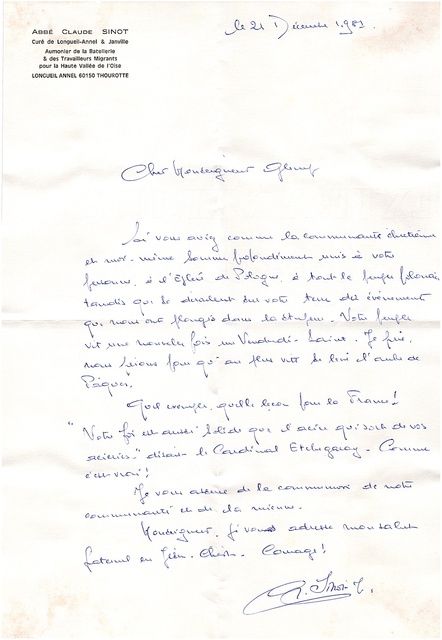 ABBÉ CLAUDE SINOT
Curé de Longueil-Annel & Janville
Aumonier de la Batellerie
& des Travailleurs Migrants
pour la Haute Vallée de l'Oise
LONGUEIL ANNEL 60150 THOUROTTE
le 21 Décembre 1981.
Cher Monseigneur Glemp
vous comme la communauté chrétienne
et moi-même sommes profondément unis à votre
personne, à l'Église de Pologne, à tout le peuple polonais
tandis que se déroulent sur votre terre des événements
qui nous ont plongés dans la stupeur. Votre peuple
vit une nouvelle fois un Vendredi-Saint. Je prie,
nous prions pour qu'au plus vite se lève l'aube de
Pâques.
Quel exemple, quelle leçon pour la France!
"Votre foi est aussi solide que l'acier qui sort de vos
aciéries" disait le Cardinal Etchegaray. Comme
c'est vrai!
Je vous assure de la communion de notre
communauté et de la mienne.
Monseigneur, je vous adresse mon salut
fraternel en Jésus-Christ. Courage!
C. Sinot